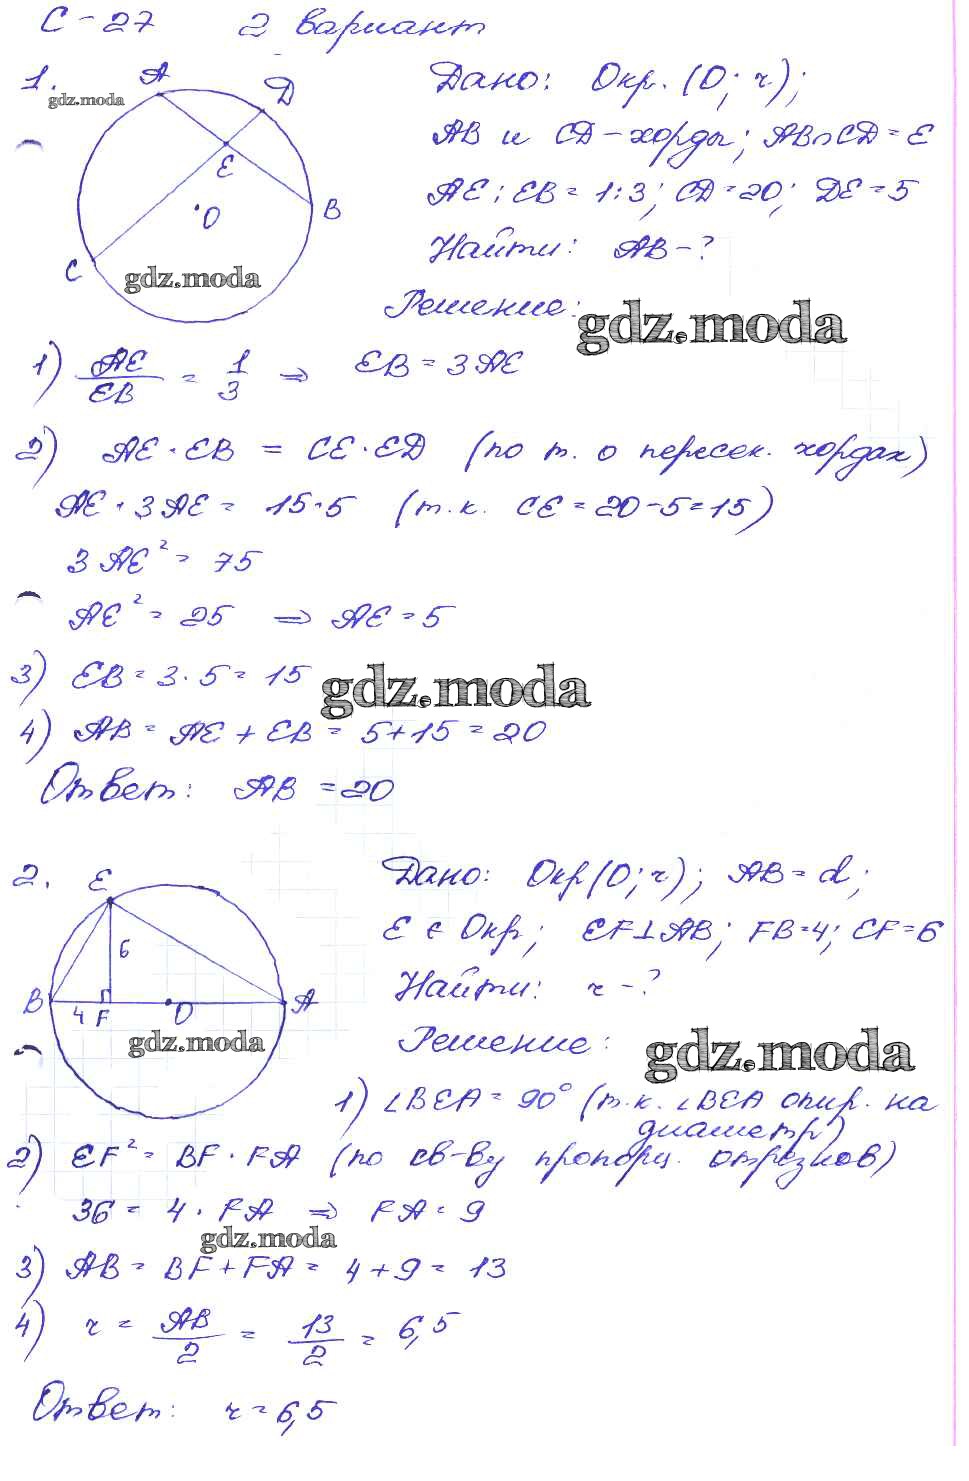 С-27 2 вариант
1.
gdz.moda
A
D
E
B
O
C
gdz.moda
Дано: Окр. (O; r);
AB и CD - хорды; AB∩CD = E
AE : EB = 1:3; CD = 20; DE = 5
Найти: AB - ?
Решение:
gdz.moda
1) AE/EB = 1/3 ⇒ EB = 3AE
2) AE · EB = CE · ED (по т. о пересек. хордах)
AE · 3AE = 15·5 (т.к. CE = 20-5=15)
3AE² = 75
AE² = 25 ⇒ AE = 5
3) EB = 3·5 = 15
gdz.moda
4) AB = AE + EB = 5+15 = 20
Ответ: AB = 20
2.
E
6
B
4 F
O
A
gdz.moda
Дано: Окр(O; r); AB = d;
E ∈ Окр; EF⊥AB; FB=4; EF=6
Найти: r - ?
Решение:
gdz.moda
1) ∠BEA = 90° (т.к. ∠BEA опир. на
диаметр)
2) EF² = BF · FA (по св-ву пропорц. отрезков)
36 = 4 · FA ⇒ FA = 9
gdz.moda
3) AB = BF + FA = 4 + 9 = 13
4) r = AB/2 = 13/2 = 6,5
Ответ: r = 6,5